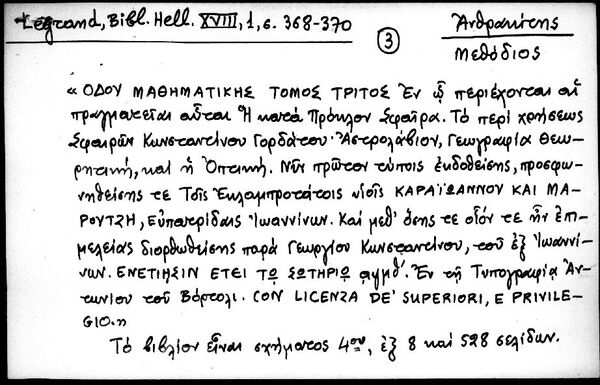 Legrand, Bibl. Hell. XVIII, 1, σ. 368-370
③
Ἀνθρακίτης
Μεθόδιος
« ΟΔΟΥ ΜΑΘΗΜΑΤΙΚΗΣ ΤΟΜΟΣ ΤΡΙΤΟΣ Ἐν ᾧ περιέχονται αἱ
πραγματεῖαι αὗται Ἡ κατά Πρόκλον Σφαῖρα. Τό περί χρήσεως
Σφαιρῶν Κωνσταντίνου Γορδάτου· Ἀστρολάβιον, Γεωγραφία Θεω-
ρητική, καί ἡ Ὀπτική. Νῦν πρῶτον τύποις ἐκδοθείσης, προσφω-
νηθείσης τε Τοῖς Ἐκλαμπροτάτοις υἱοῖς ΚΑΡΑΪΩΑΝΝΟΥ ΚΑΙ ΜΑ-
ΡΟΥΤΖΗ, Εὐπατρίδαις Ἰωαννίνων. Καί μεθ' ὅσης τε οἷόν τε ἦν ἐπι-
μελείας διορθωθείσης παρά Γεωργίου Κωνσταντίνου, τοῦ ἐξ Ἰωαννί-
νων. ΕΝΕΤΙΗΣΙΝ ΕΤΕΙ ΤΩ ΣΩΤΗΡΙΩ αψμθ'. Ἐν τῇ Τυπογραφίᾳ Ἀν-
τωνίου τοῦ Βόρτολι. CON LICENZA DE' SUPERIORI, E PRIVILE-
GIO.»
Τό βιβλίον εἶναι σχήματος 4ου, ἐξ 8 καί 528 σελίδων.